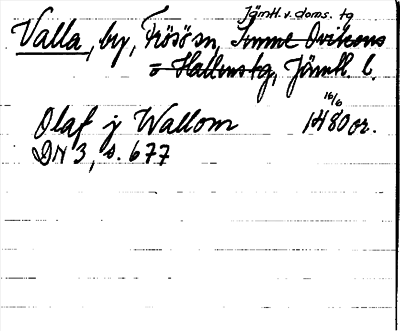 Jämtl. v. doms. tg
Valla, by, Frösö sn, Sunne Ovikens
o Hallens tg, Jämtl l.
16/6
Olaf j Wallom 1480 or.
DN 3, s. 677